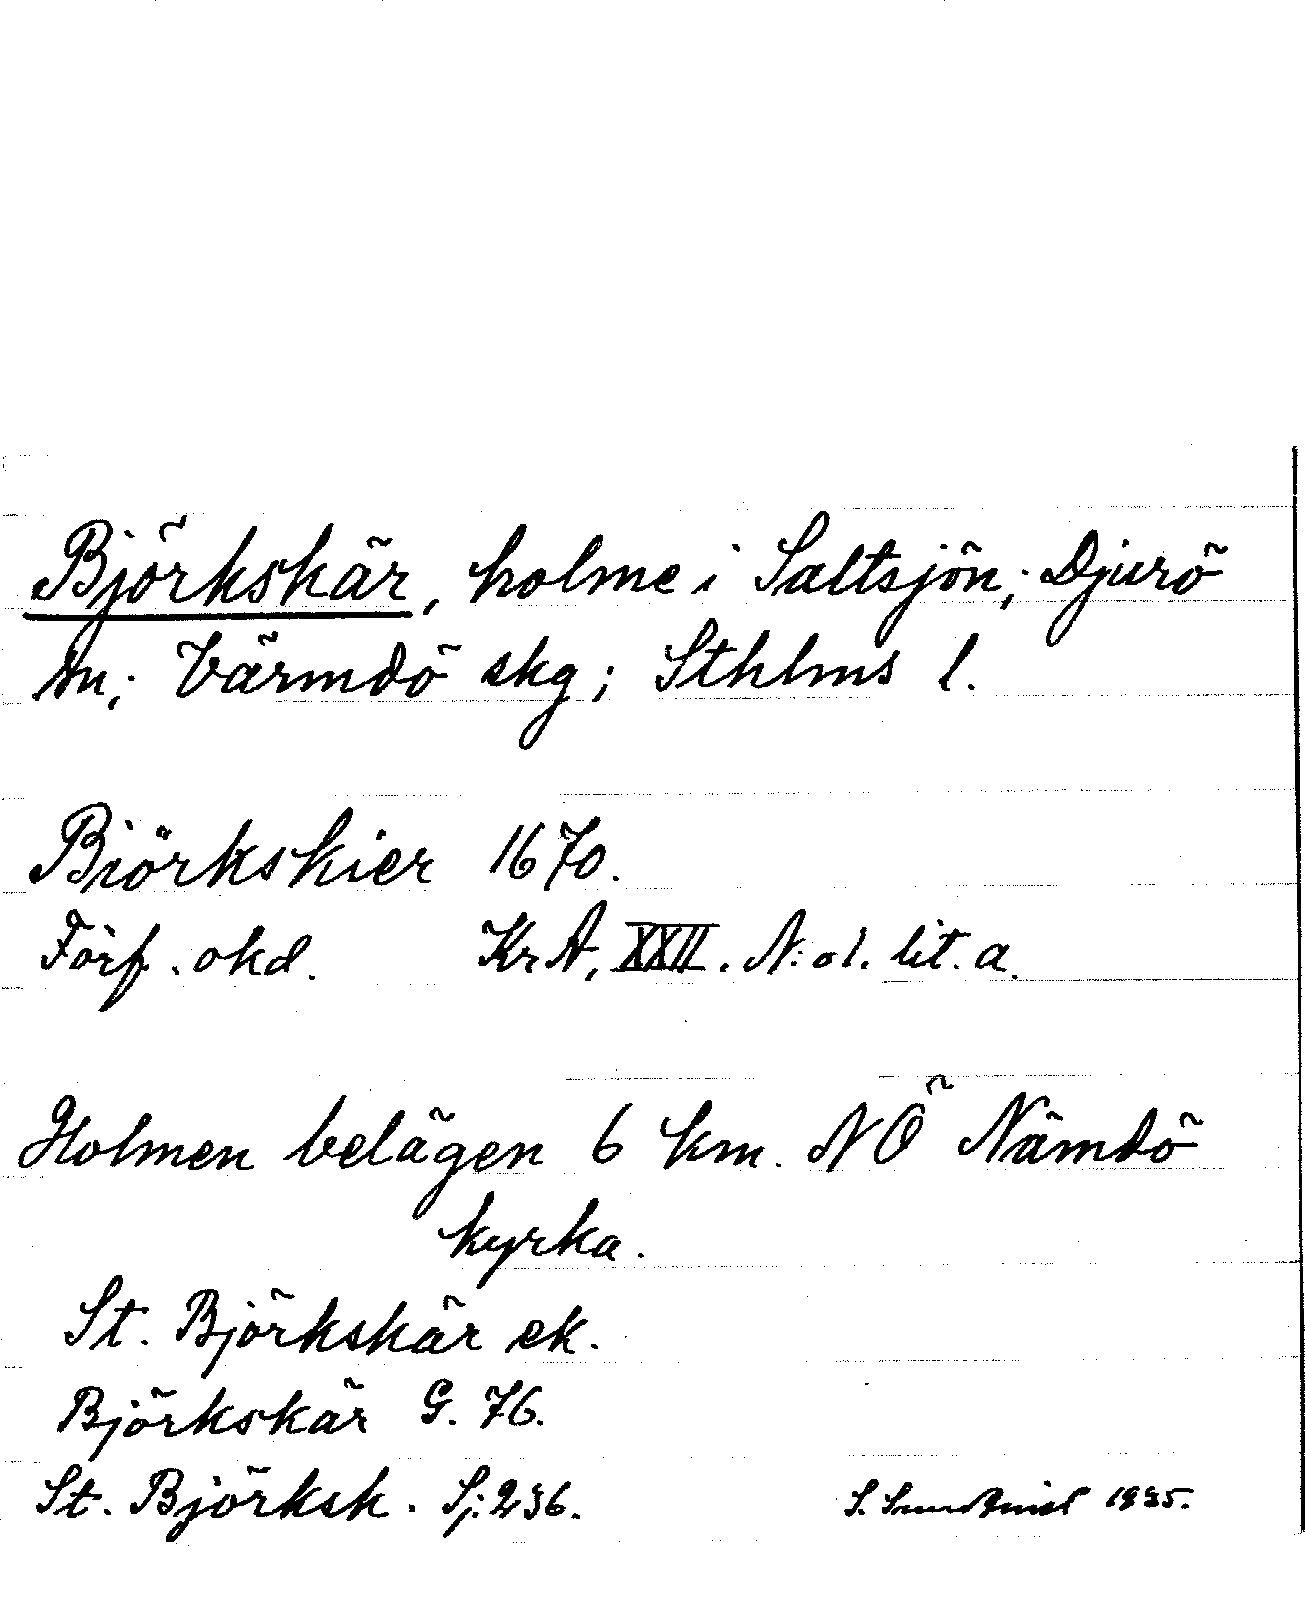 Björkskär, holme i Saltsjön; Djurö
sn; Värmdö skg; Sthlms l.
Biörkskier 1670.
Förf. okd. KrA, XXII. N: o 1. lit. a.
Holmen belägen 6 km. NÖ Nämdö
kyrka.
St. Björkskär ek.
Björkskär G. 76.
St. Björksk. Sj: 236.
S. 1935.